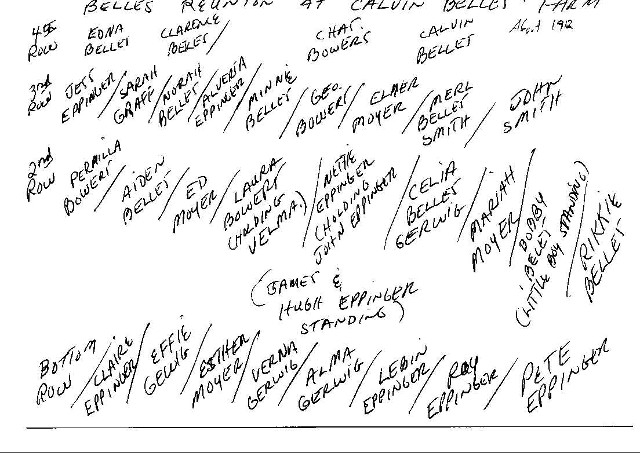 BELLES REUNION AT CALVIN BELLES FARM
4th ROW EDNA BELLES CLARENCE BELLES / CHAS. BOWERS CALVIN BELLES
3rd ROW JESS EPPINGER / SARAH GRAFF / NORAH BELLES / ALVERTA EPPINGER / MINNIE BELLES / GEO. BOWERS / ELMER MOYER / MERL BELLES SMITH / JOHN SMITH
2nd ROW PERMILLA BOWERS / AIDEN BELLES / ED MOYER / LAURA BOWERS (HOLDING VELMA) / NETTIE EPPINGER (HOLDING JOHN EPPINGER / CELIA BELLES GERWIG / MARIAH MOYER / BOBBY BELLES (LITTLE BOY STANDING) / RIKKIE BELLES
(JAMES &
HUGH EPPINGER
STANDING)
BOTTOM ROW / CLAIRE EPPINGER / EFFIE GEWIG / ESTHER MOYER / VERNA GERWIG / ALMA GERWIG / LEOIN EPPINGER / ROY EPPINGER / PETE EPPINGER